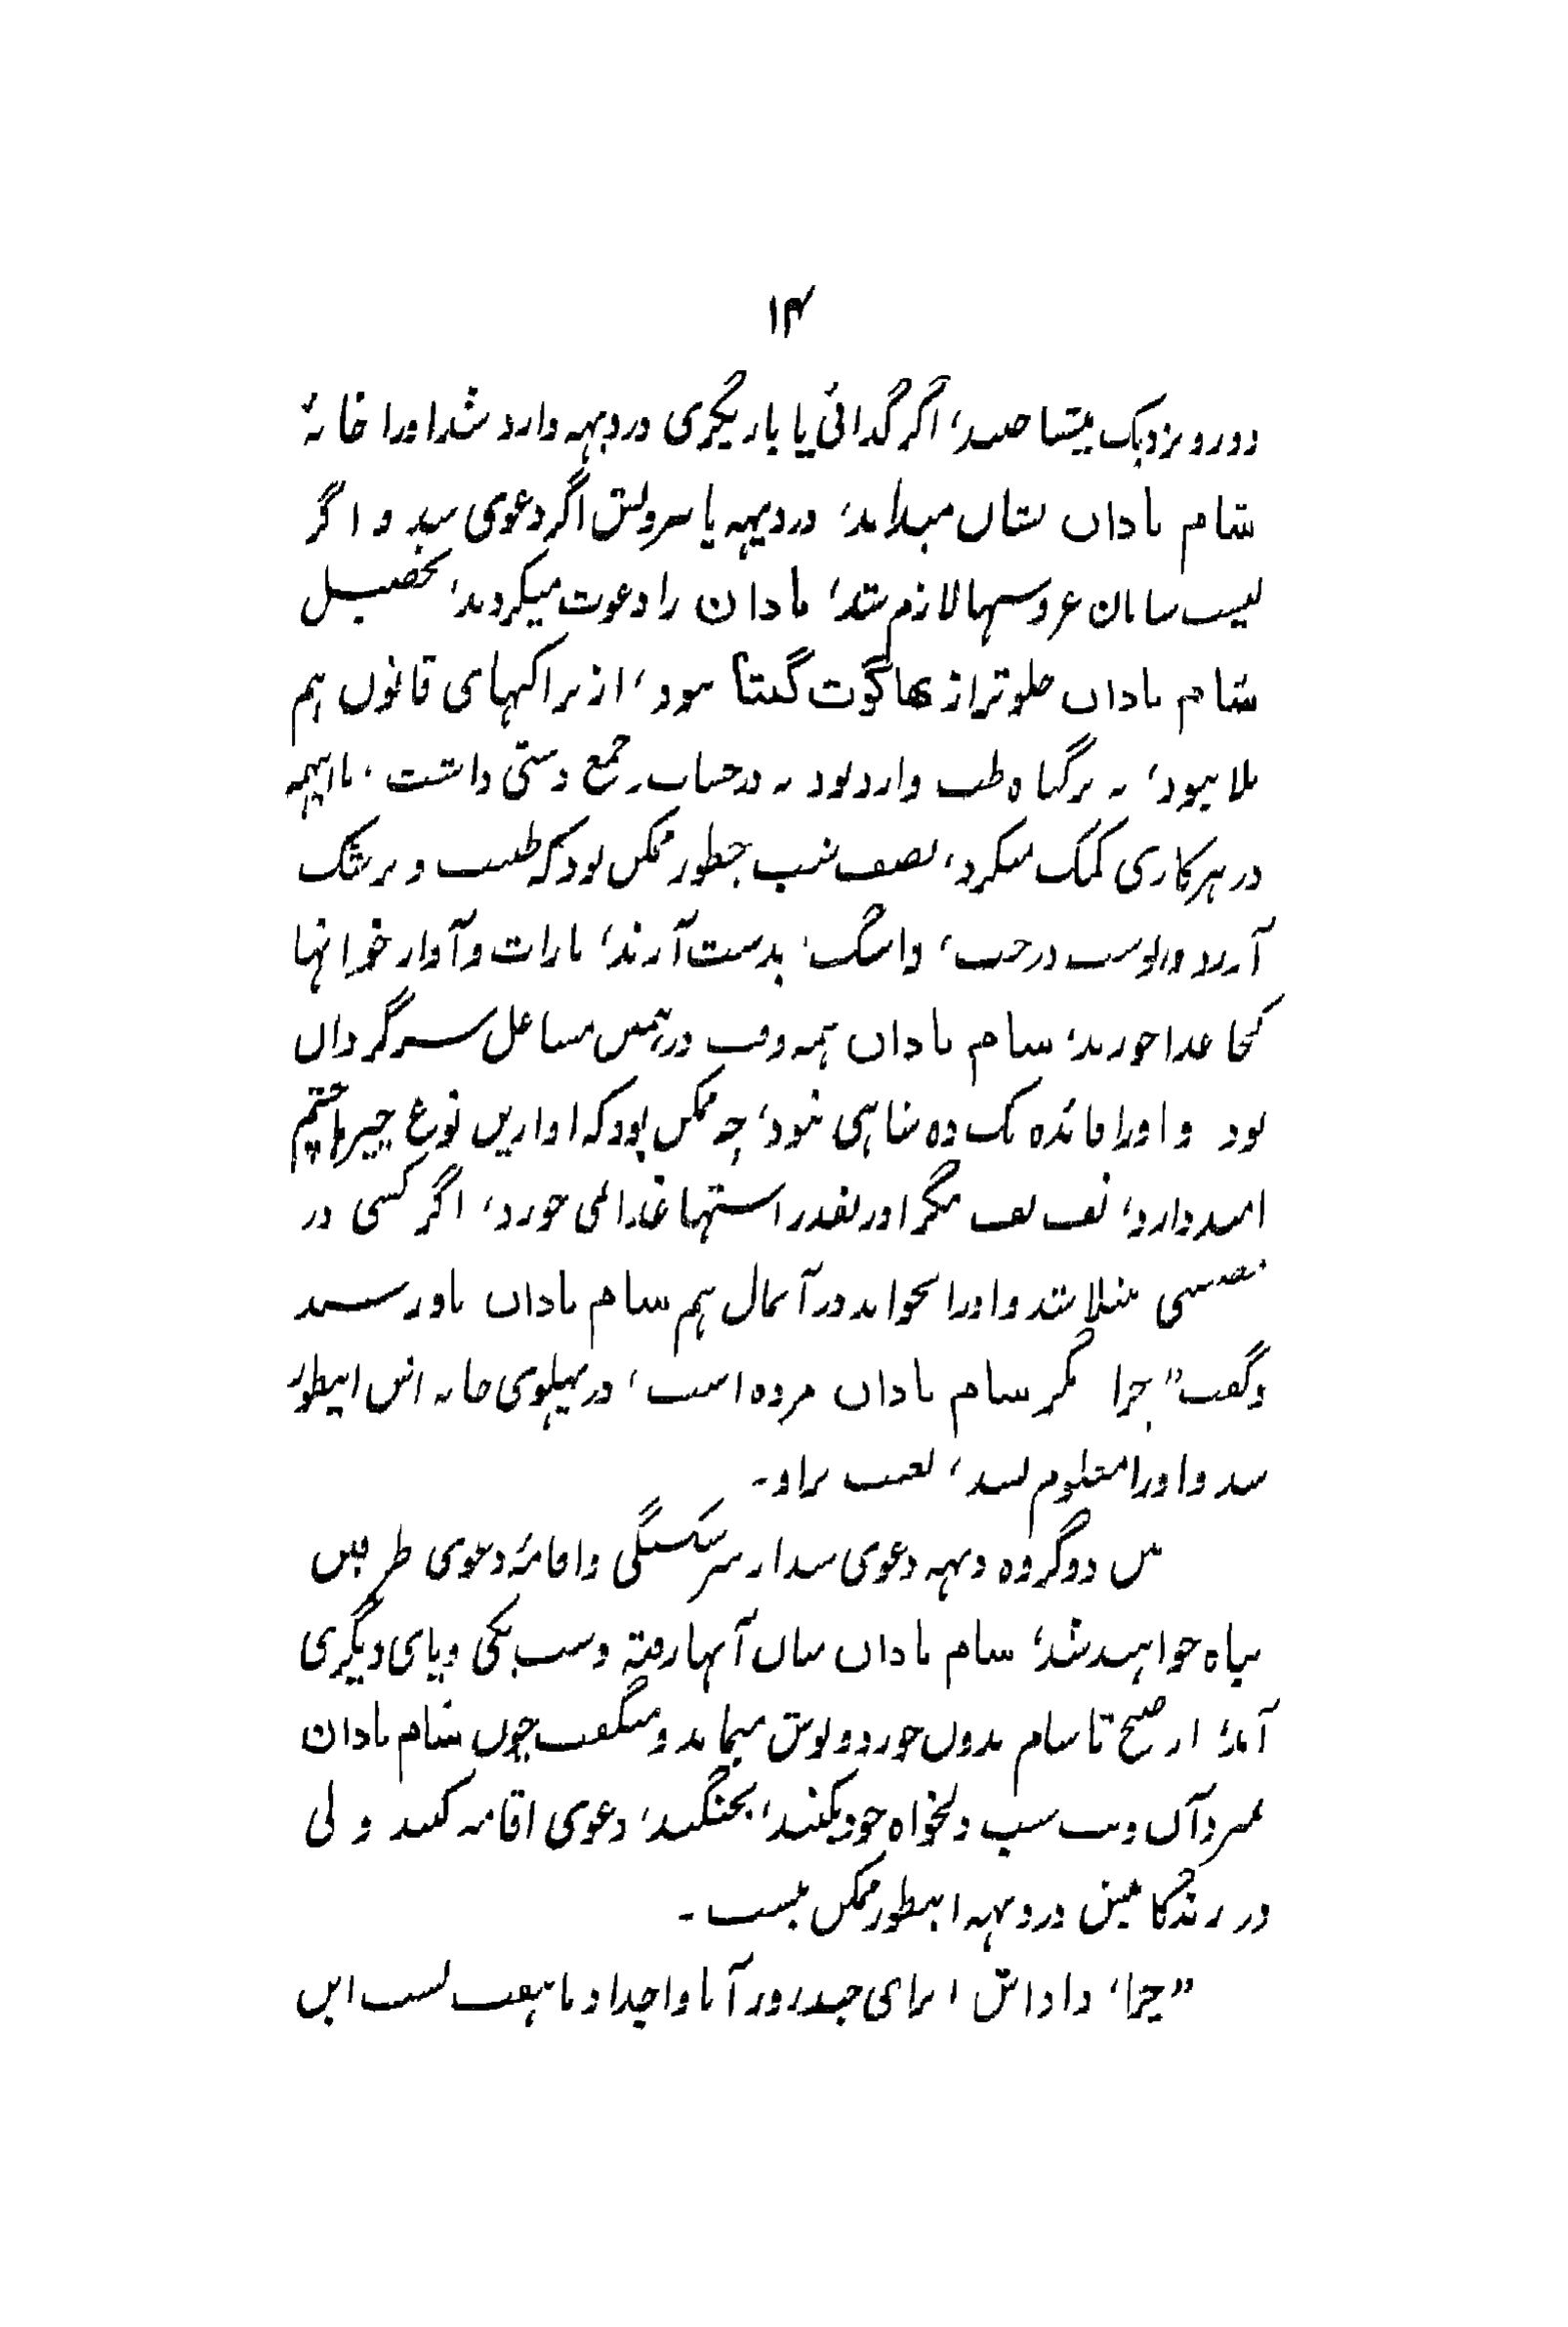 ۱۴
دور و نزدیک میشناسند، اگر گدائی یا بازیگری در دیهه وارد شد اورا خانهٔ
شام بادان نشان میدادند، در دیهه یا سرولش اگر دعوی شد و اگر
لیست سامان عروسیها لازم شد، بادان را دعوت میکردند، تحصیل
شام بادان جلوتر از بهاگوت گیتا نبود، از براکهای قانون هم
بلد نبود، نه برگیاه طب وارد بود نه در حساب جمع دستی داشت، بااینهمه
در هر کاری کمک میکرد، نصف شب چطور ممکن بود که طبیب و پزشک
آرند و بدست آرند، بارات و آواز خوانها
کجا غذا خورند، شام بادان همه وقت در همین مشاغل سرگردان
بود و اورا فائده یک ده شاهی نبود، چه ممکن بود که او ازین نوع چیزها چشم
امید دارد، تف تف مگر او بقدر اشتها غذا نمی خورد، اگر کسی در
مصیبتی مبتلا شد و اورا نخواند در آنحال هم شام بادان باو رسید
و گفت "چرا مگر شام بادان مرده است، در پهلوی خانه اش اینطور
شد و اورا معلوم نشد، تعجب براو۔
بین دو گروه دیهه دعوی شد از سرشکستگی و اقامهٔ دعوی طرفین
تباه خواهند شد، شام بادان میان آنها رفته دست یکی و پای دیگری
آمد، از صبح تا شام بدون خورد و نوش میماند و میگفت چون شام بادان
بمیرد آن وقت حسب دلخواه خود بکنند، بجنگید، دعوی اقامه کنید ولی
در زندگانیش در دیهه اینطور ممکن نیست۔
"چرا، داداش! برای چند روز آبا و اجداد ما بهفت پشت این